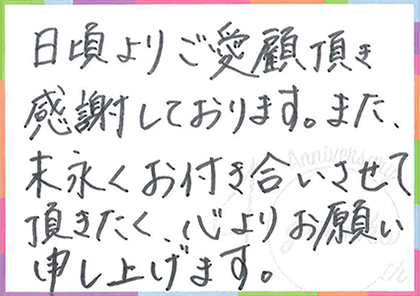 日頃よりご愛顧頂き
感謝しております。また、
末永くお付き合いさせて
頂きたく、心よりお願い
申し上げます。
Anniversary
th